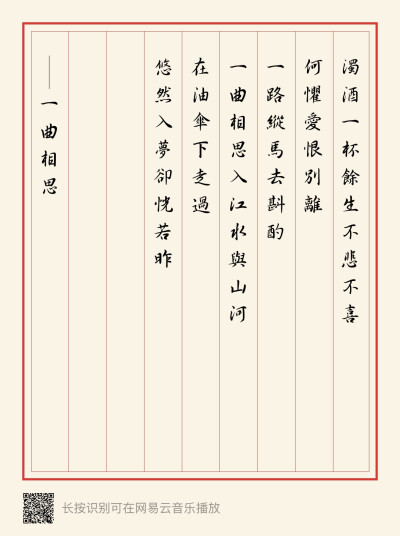 濁酒一杯餘生不悲不喜
何懼愛恨別離
一路縱馬去斟酌
一曲相思入江水與山河
在油傘下走過
悠然入夢卻恍若昨
——一曲相思
长按识别可在网易云音乐播放